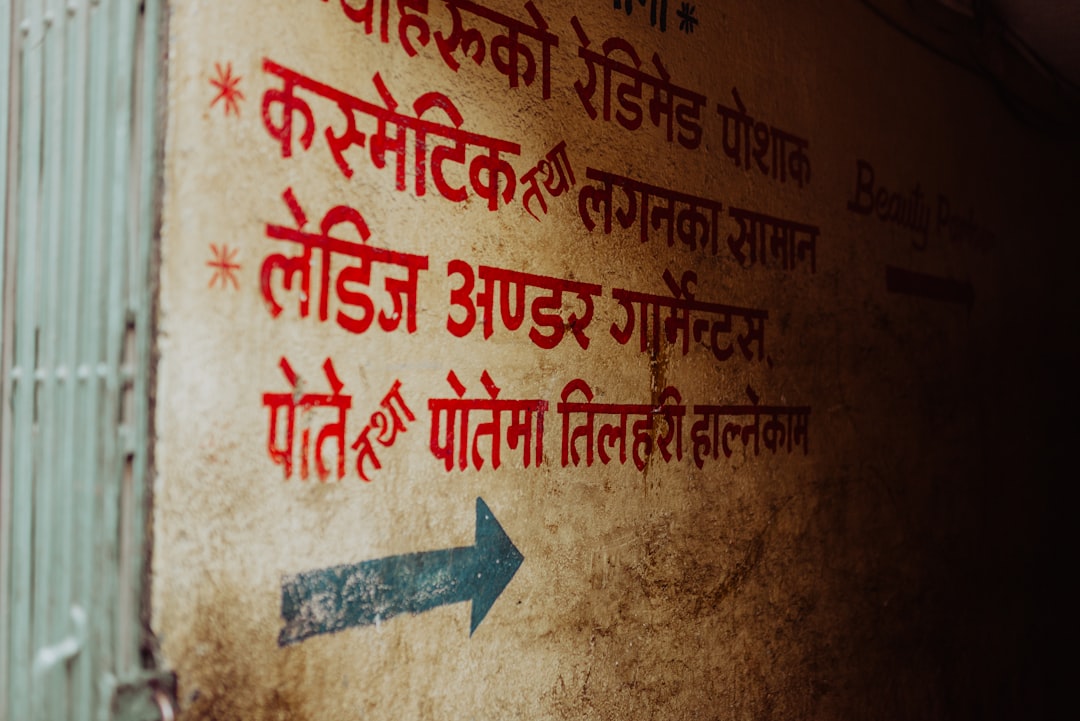 रेडिमेड पोशाक
कस्मेटिक तथा लगनका सामान
लेडिज अण्डर गार्मेन्टस्
पोते तथा पोतेमा तिलहरी हाल्नेकाम
Beauty